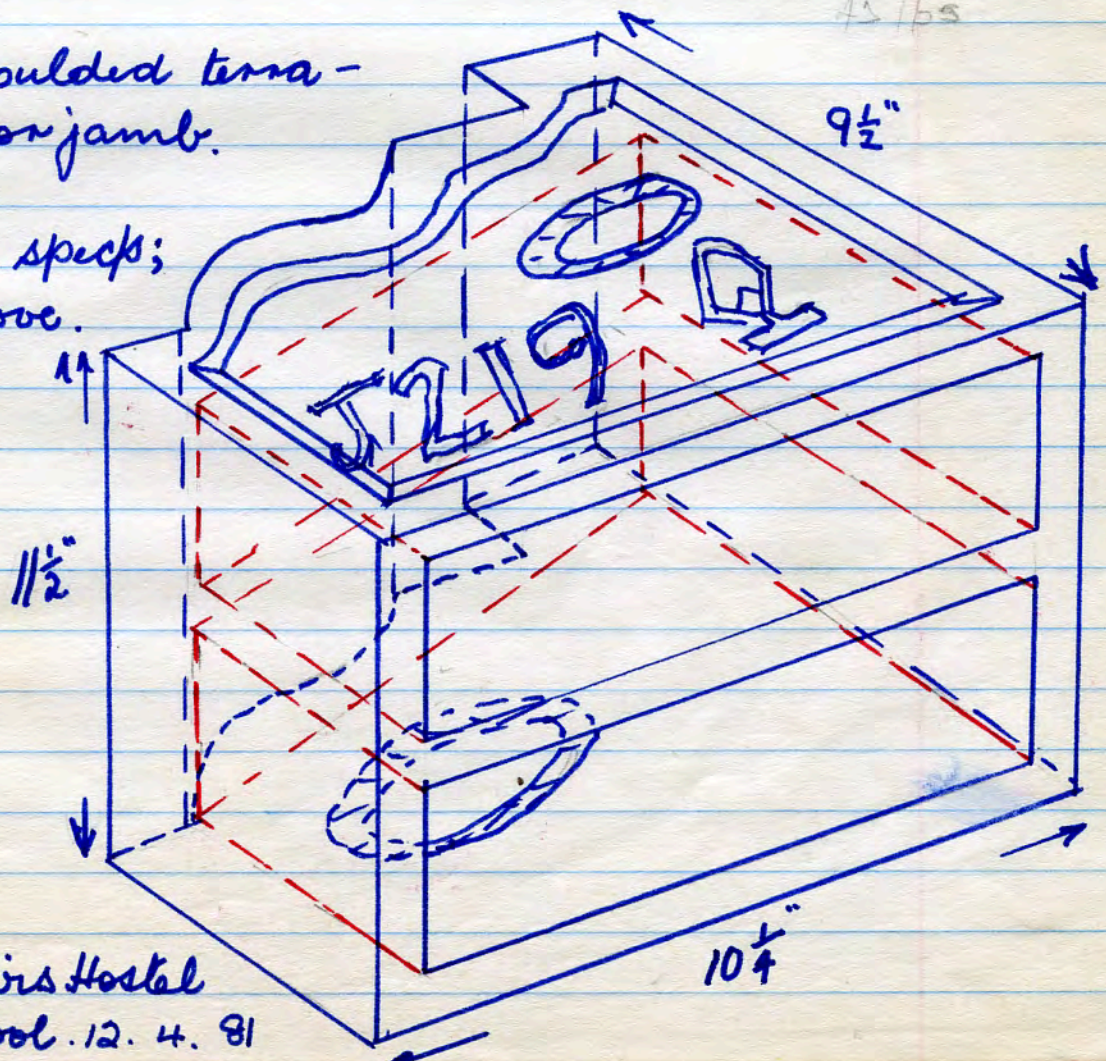 oulded terra-
or jamb.
specks;
ove.
9½"
J219 Q
11½"
10¼"
Hostel
ool. 12. 4. 81